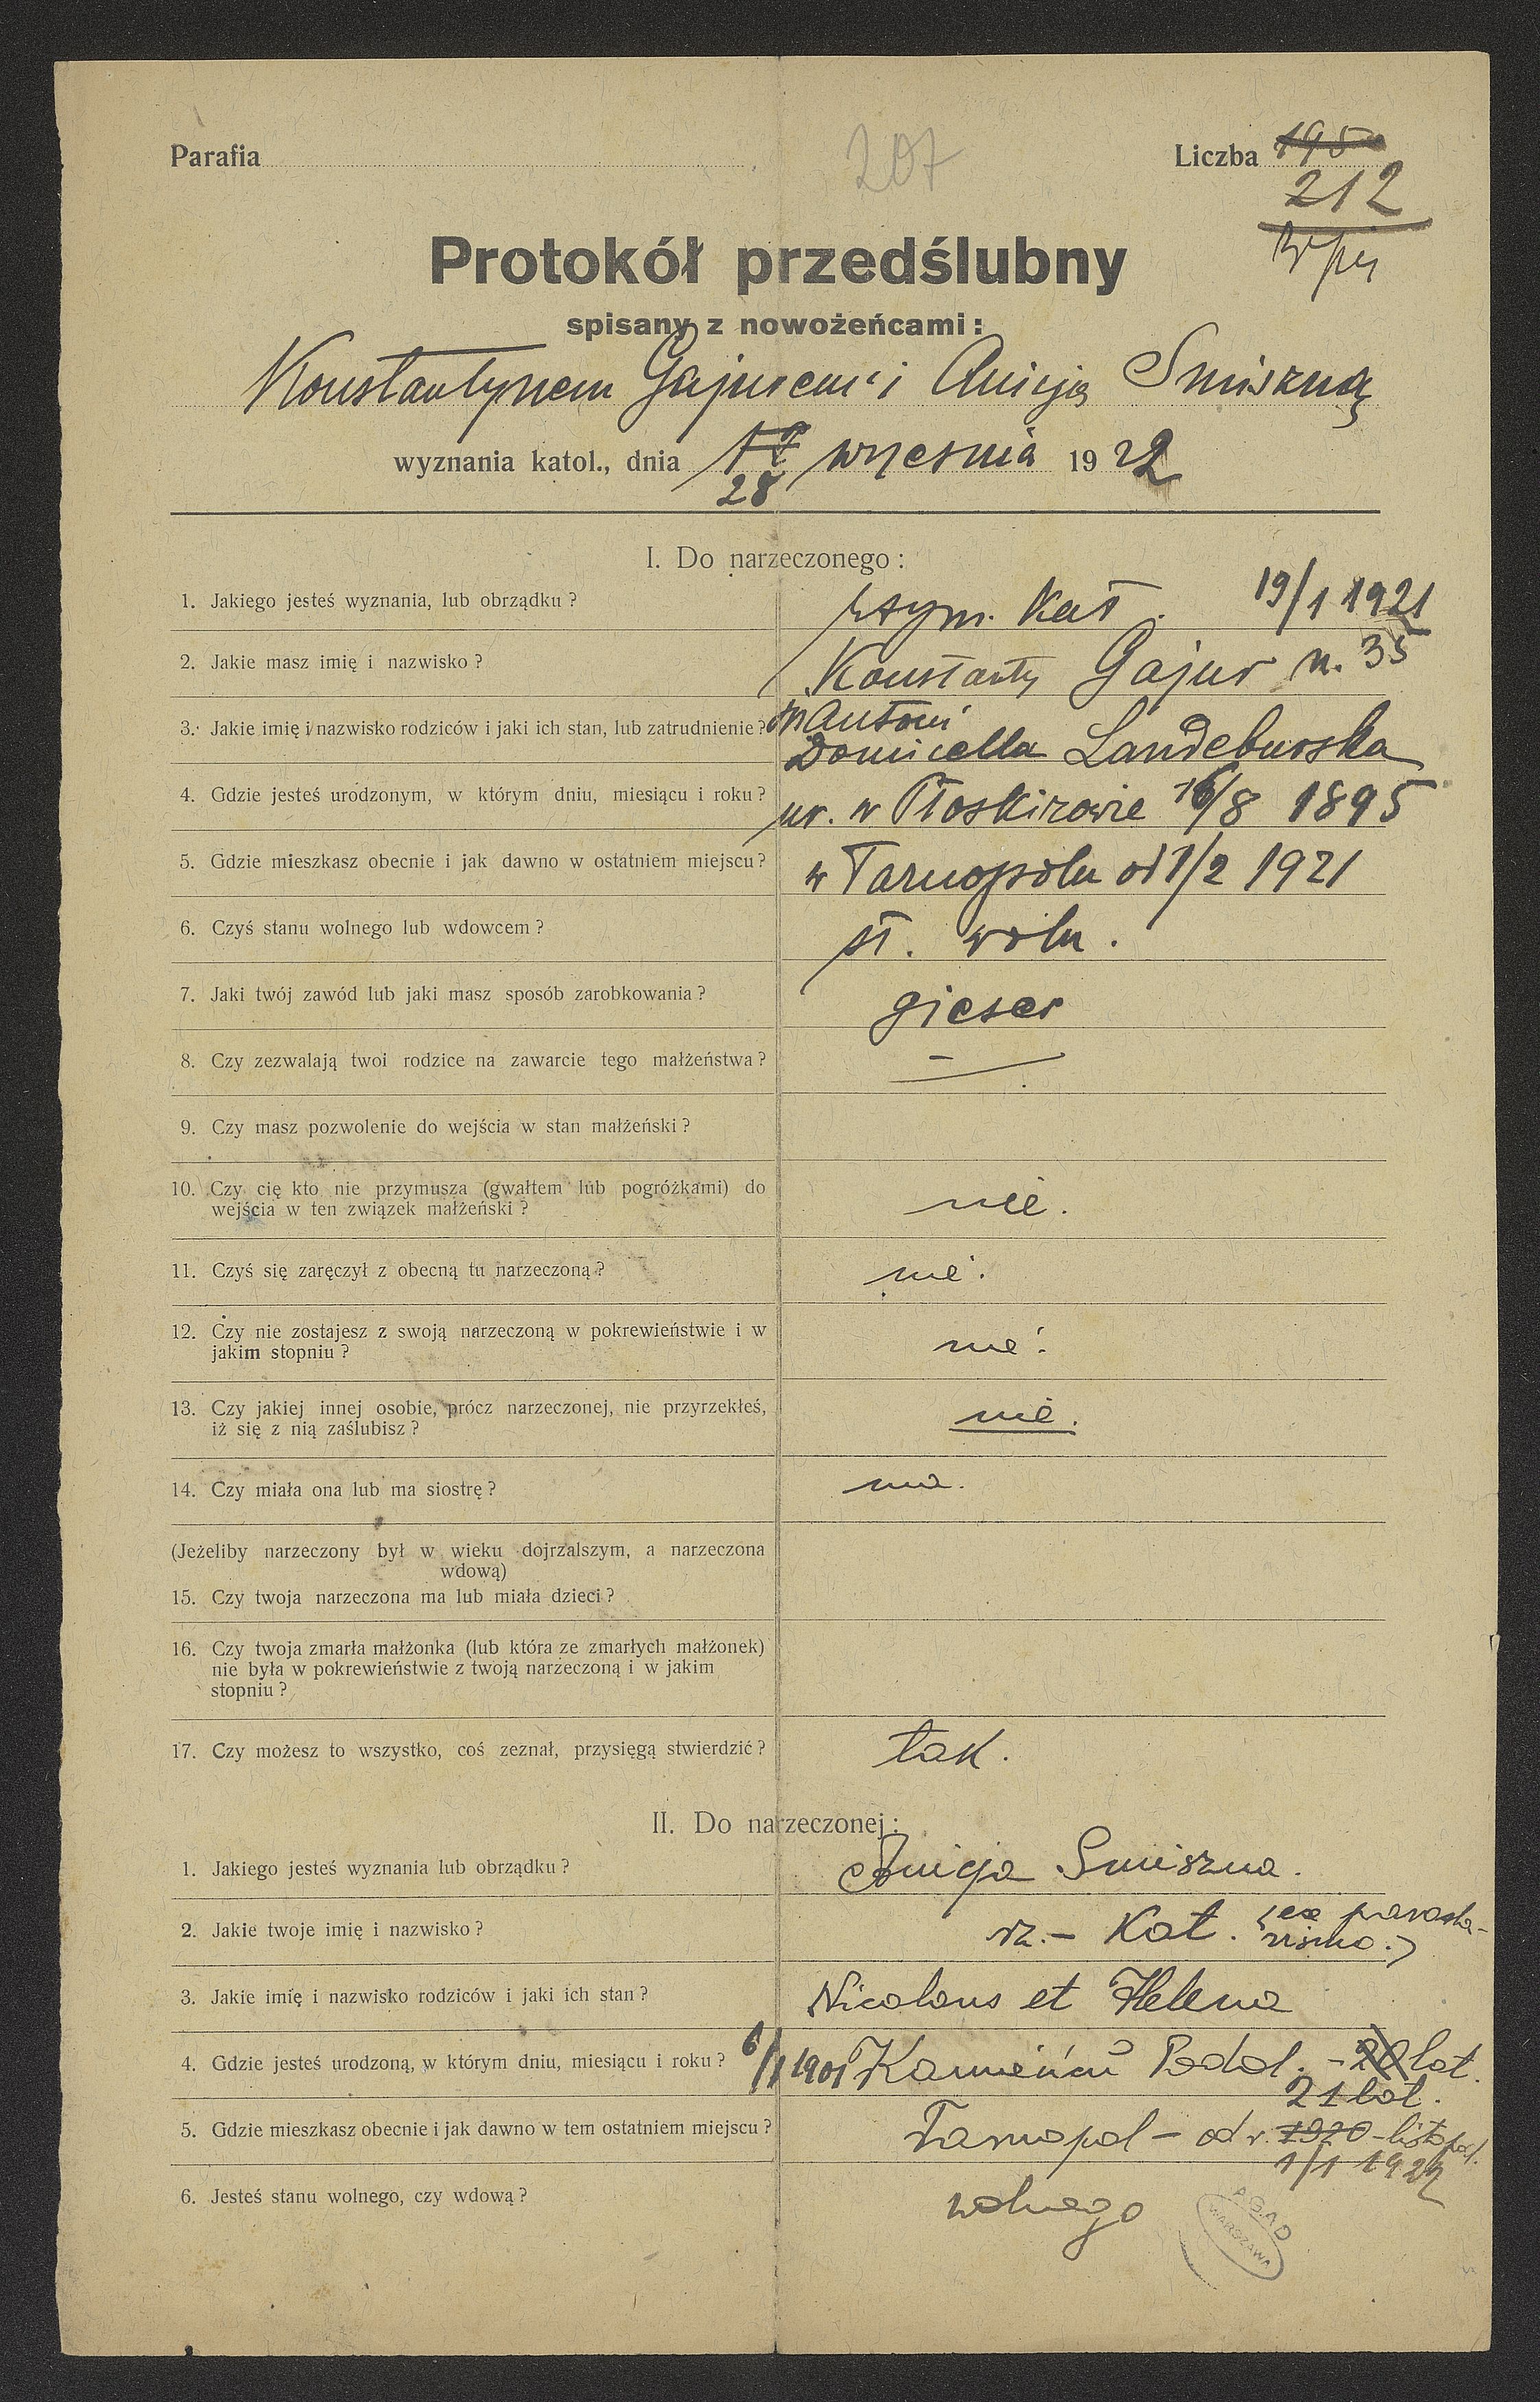 Parafia
207
Liczba 195
212
Protokół przedślubny
spisany z nowożeńcami:
Konstantynem Gajurem i Anicją Smiszną
wyznania katol., dnia 17 września 1922
28
I. Do narzeczonego:
1. Jakiego jesteś wyznania, lub obrządku? rzym. kat. 19/1 1921
2. Jakie masz imię i nazwisko? Konstanty Gajur n. 35
3. Jakie imię i nazwisko rodziców i jaki ich stan, lub zatrudnienie? Antoni
Domicella Landeburska
4. Gdzie jesteś urodzonym, w którym dniu, miesiącu i roku? ur. w Płoskirowie 16/8 1895
5. Gdzie mieszkasz obecnie i jak dawno w ostatniem miejscu? w Tarnopolu od 1/2 1921
6. Czyś stanu wolnego lub wdowcem? st. woln.
7. Jaki twój zawód lub jaki masz sposób zarobkowania? gieser
8. Czy zezwalają twoi rodzice na zawarcie tego małżeństwa? —
9. Czy masz pozwolenie do wejścia w stan małżeński?
10. Czy cię kto nie przymusza (gwałtem lub pogróżkami) do
wejścia w ten związek małżeński? nie.
11. Czyś się zaręczył z obecną tu narzeczoną? nie.
12. Czy nie zostajesz z swoją narzeczoną w pokrewieństwie i w
jakim stopniu? nie.
13. Czy jakiej innej osobie, prócz narzeczonej, nie przyrzekłeś,
iż się z nią zaślubisz? nie.
14. Czy miała ona lub ma siostrę? ma.
(Jeżeliby narzeczony był w wieku dojrzalszym, a narzeczona
wdową)
15. Czy twoja narzeczona ma lub miała dzieci?
16. Czy twoja zmarła małżonka (lub która ze zmarłych małżonek)
nie była w pokrewieństwie z twoją narzeczoną i w jakim
stopniu?
17. Czy możesz to wszystko, coś zeznał, przysięgą stwierdzić? tak.
II. Do narzeczonej:
1. Jakiego jesteś wyznania lub obrządku? Anicja Smiszna.
2. Jakie twoje imię i nazwisko? rz.- Kat. (ex
3. Jakie imię i nazwisko rodziców i jaki ich stan? Nicolaus et Helena
4. Gdzie jesteś urodzoną, w którym dniu, miesiącu i roku? 6/1 1901 Kamieńcu Podol. - 20 lat.
21 lat.
5. Gdzie mieszkasz obecnie i jak dawno w tem ostatniem miejscu? Tarnopol - od r. 1920 - listopad.
1/1 1922
6. Jesteś stanu wolnego, czy wdową? wolnego
AGAD
WARSZAWA